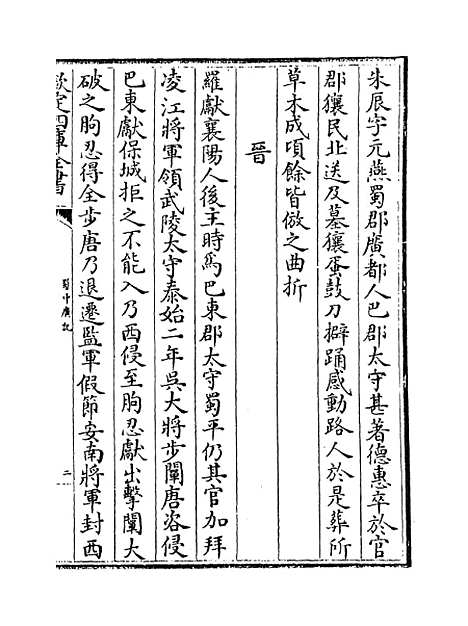 朱辰字元燕蜀郡廣都人巴郡太守甚著德惠卒於官
郡獽民北送及墓獽蜑鼓刀擗踊感動路人於是葬所
草木成項餘皆倣之曲折
晉
羅獻襄陽人後主時爲巴東郡太守蜀平仍其官加拜
凌江將軍領武陵太守泰始二年吳大將步闡唐咨侵
巴東獻保城拒之不能入乃西侵至朐忍獻出擊闡大
破之朐忍得全步唐乃退遷監軍假節安南將軍封西
欽定四庫全書
蜀中廣記
二